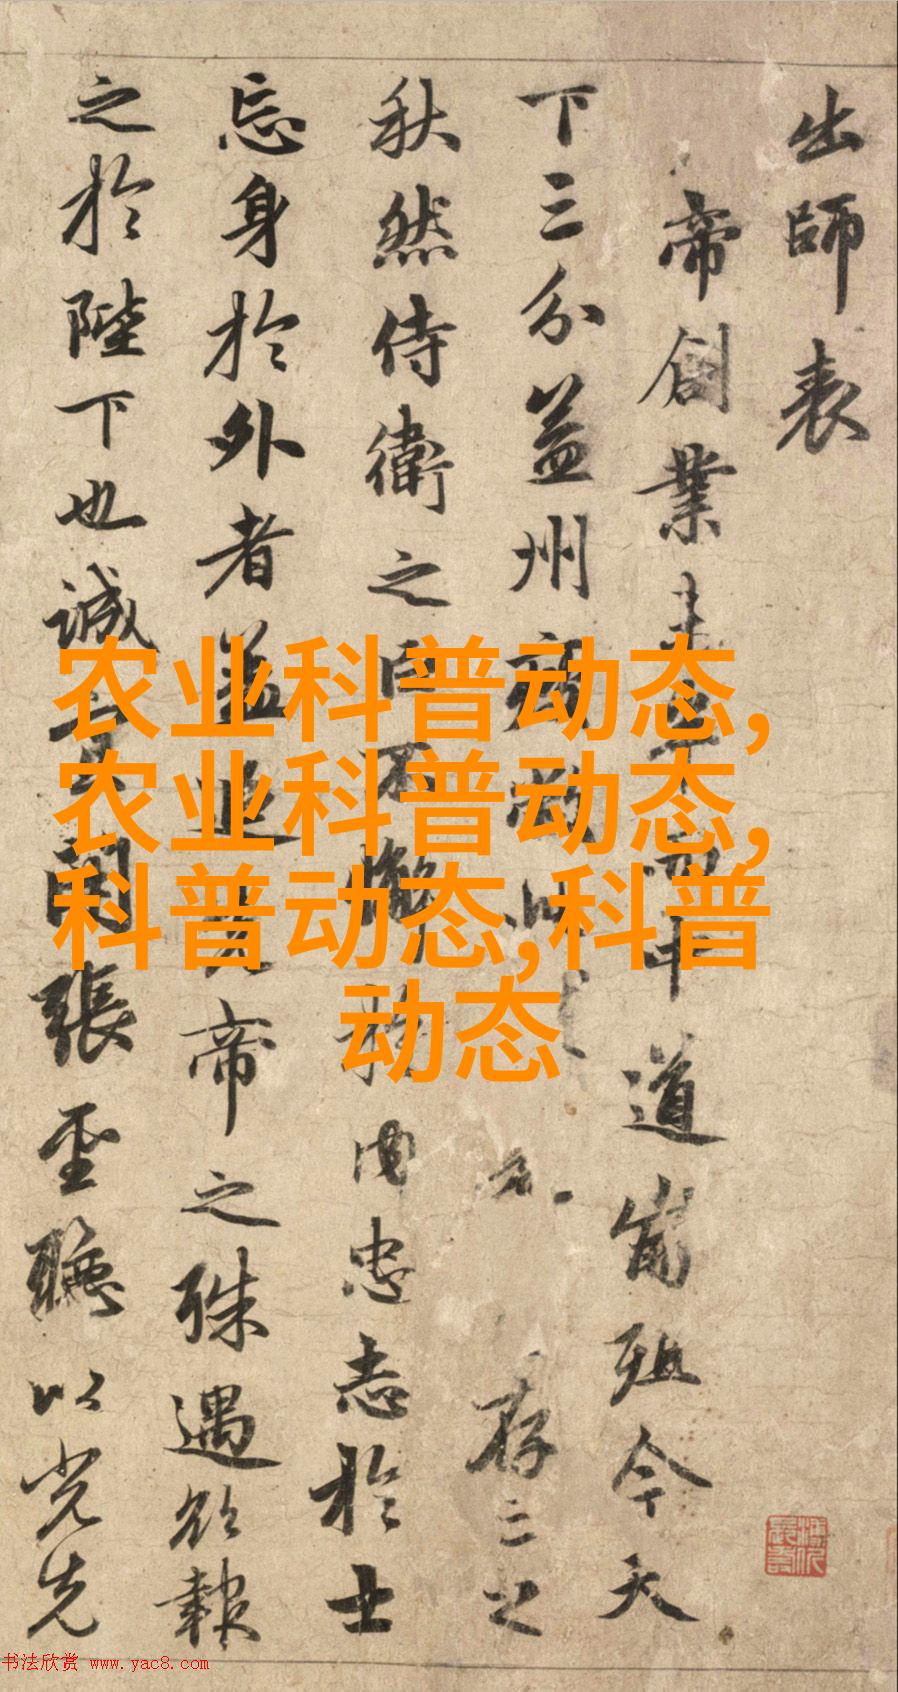 出師表
帝創業未半而中道崩殂今天
下三分益州存亡之
秋然侍衛之臣不懈於内忠志於士
忘身於外者蓋追先帝之殊遇欲報
之於陛下也誠宜開張聖聽以光先
农业科普动态,
农业科普动态,
科普动态,科普
动态
书法欣赏 www.yac8.com